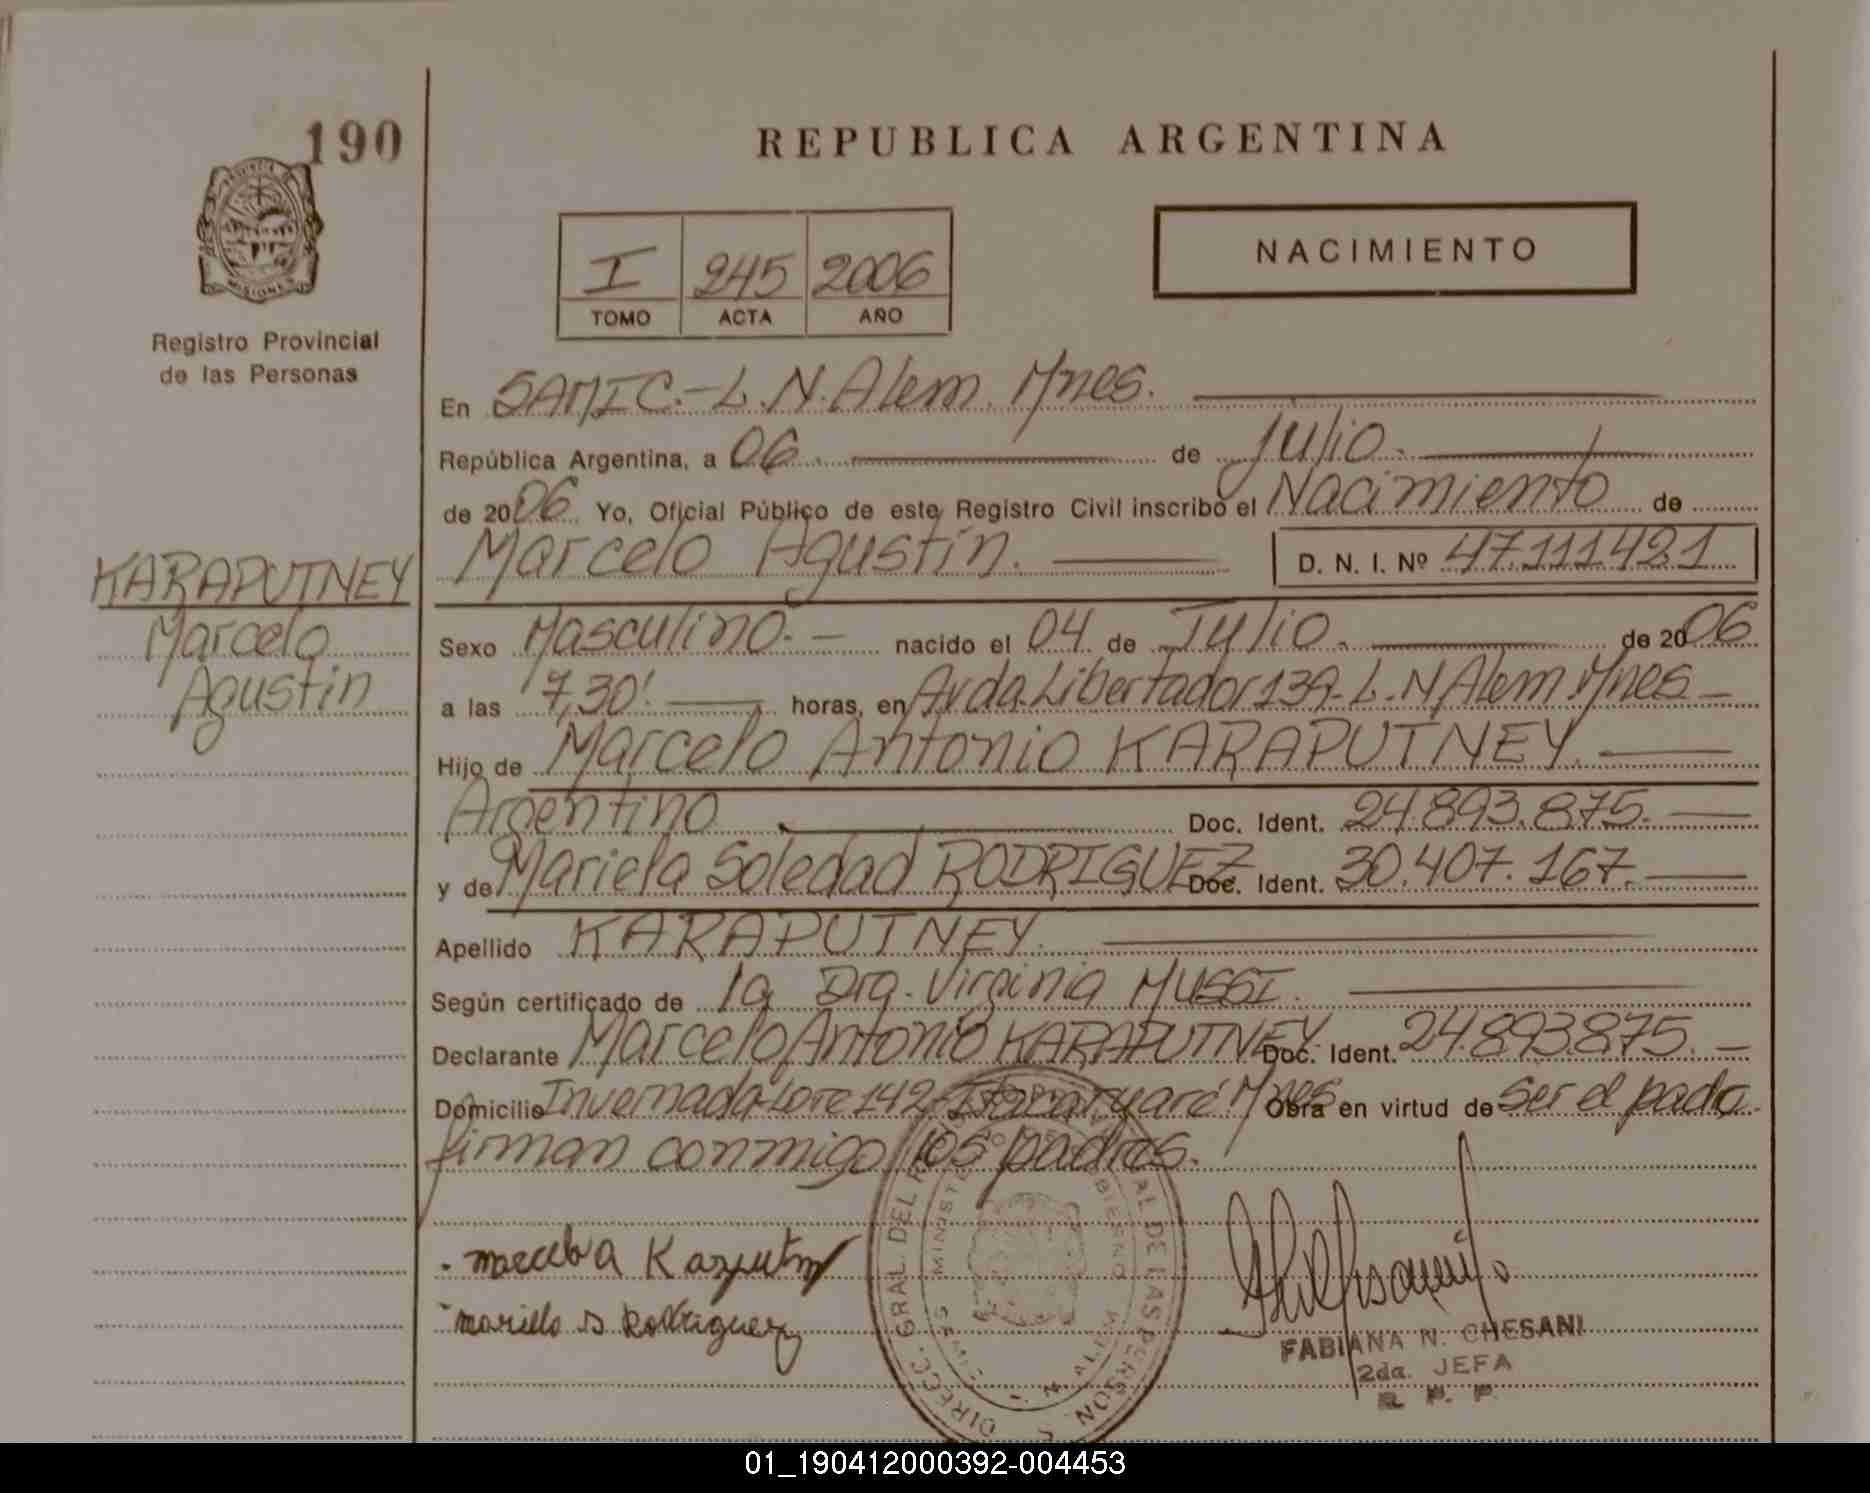 190
REPUBLICA ARGENTINA
MISIONES
NACIMIENTO
I 245 2006
TOMO ACTA AÑO
Registro Provincial
de las Personas
En SAMIC.-L.N.Alem. Mnes.
República Argentina, a 06 de Julio.
de 2006 Yo, Oficial Público de este Registro Civil inscribo el Nacimiento de
Marcelo Agustín. D. N. I. Nº 47.111.421
KARAPUTNEY
Marcelo
Agustin
Sexo Masculino.- nacido el 04 de Julio. de 2006
a las 7,30' horas, en Avda.Libertador 139-L.N Alem Mnes
Hijo de Marcelo Antonio KARAPUTNEY.
Argentino Doc. Ident. 24.893.875.
y de Mariela Soledad RODRIGUEZ Doc. Ident. 30.407.167.
Apellido KARAPUTNEY.
Según certificado de la Dra. Virginia MUSSI.
Declarante Marcelo Antonio KARAPUTNEY Doc. Ident. 24.893.875.-
Domicilio Invernada-Lote 142- Mnes Obra en virtud de ser el padre
firman conmigo los padres.
DIRECC. GRAL. DEL DE LAS PERSON
MINISTE N ALEM
FABIANA N. CHESANI
2da. JEFA
R. P. P
01_190412000392-004453